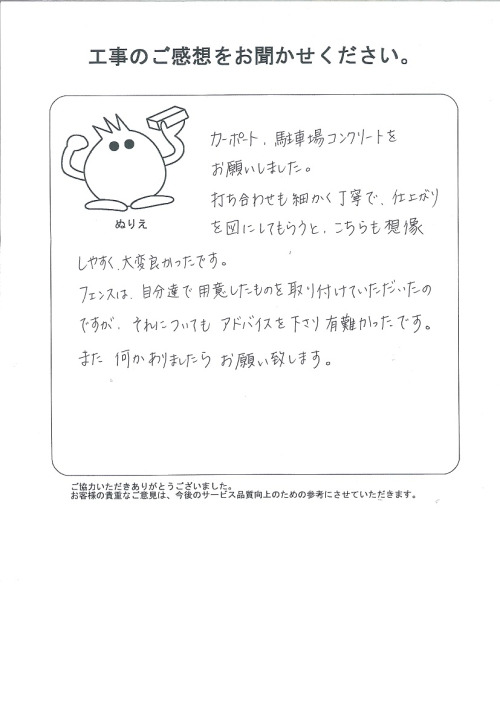 工事のご感想をお聞かせください。
カーポート、駐車場コンクリートを
お願いしました。
打ち合わせも細かく丁寧で、仕上がり
ぬりえ
を図にしてもらうと、こちらも想像
しやすく、大変良かったです。
フェンスは、自分達で用意したものを取り付けていただいたの
ですが、それについてもアドバイスを下さり有難かったです。
また何かありましたらお願い致します。
ご協力いただきありがとうございました。
お客様の貴重なご意見は、今後のサービス品質向上のための参考にさせていただきます。